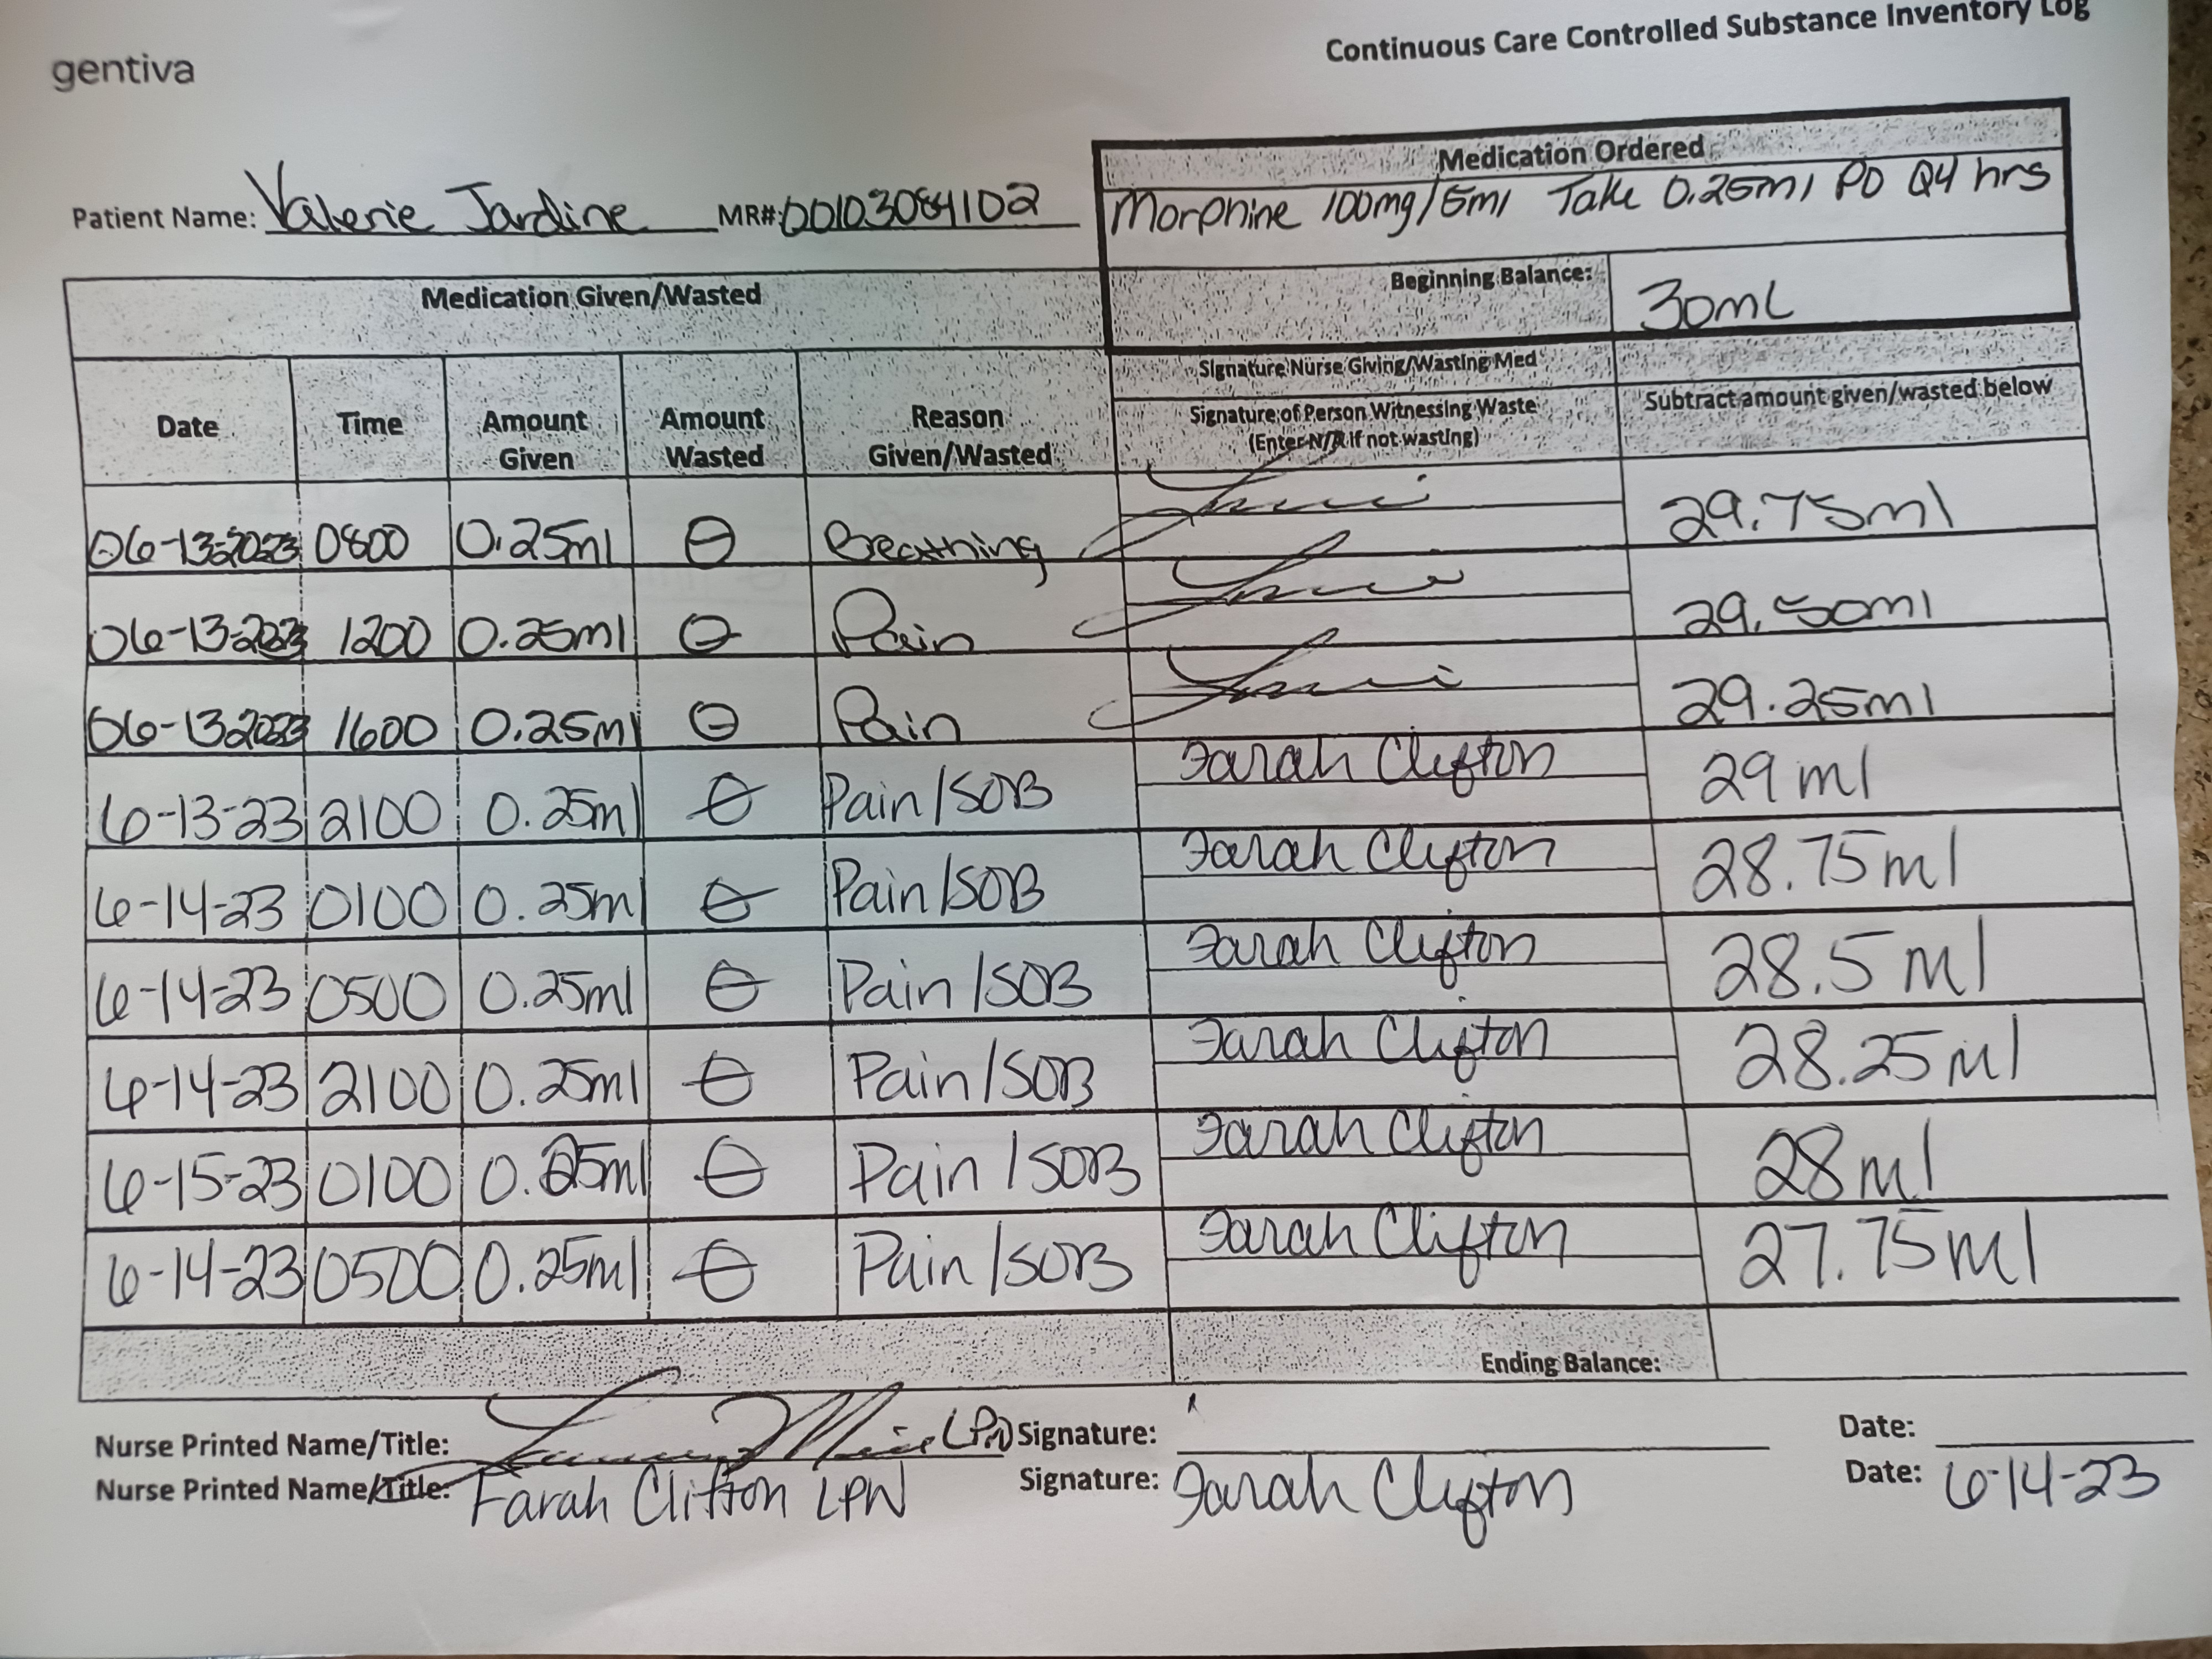 gentiva
Continuous Care Controlled Substance Inventory Log
Medication Ordered
Patient Name: Valerie Jardine MR#: 00103084102
Morphine 100mg/5ml Take 0.25ml PO Q4 hrs
Medication Given/Wasted
Beginning Balance: 30mL
Date Time Amount Given Amount Wasted Reason Given/Wasted Signature Nurse Giving/Wasting Med Signature of Person Witnessing Waste (Enter N/A if not wasting) Subtract amount given/wasted below
06-13-2023 0800 0.25ml θ Breathing 29.75ml
06-13-2023 1200 0.25ml θ Pain 29.50ml
06-13-2023 1600 0.25ml θ Pain 29.25ml
6-13-23 2100 0.25ml θ Pain/SOB Farah Clifton 29ml
6-14-23 0100 0.25ml θ Pain/SOB Farah Clifton 28.75ml
6-14-23 0500 0.25ml θ Pain/SOB Farah Clifton 28.5ml
6-14-23 2100 0.25ml θ Pain/SOB Farah Clifton 28.25ml
6-15-23 0100 0.25ml θ Pain/SOB Farah Clifton 28ml
6-14-23 0500 0.25ml θ Pain/SOB Farah Clifton 27.75ml
Ending Balance:
Nurse Printed Name/Title: LPN Signature: Date:
Nurse Printed Name/Title: Farah Clifton LPN Signature: Farah Clifton Date: 6-14-23